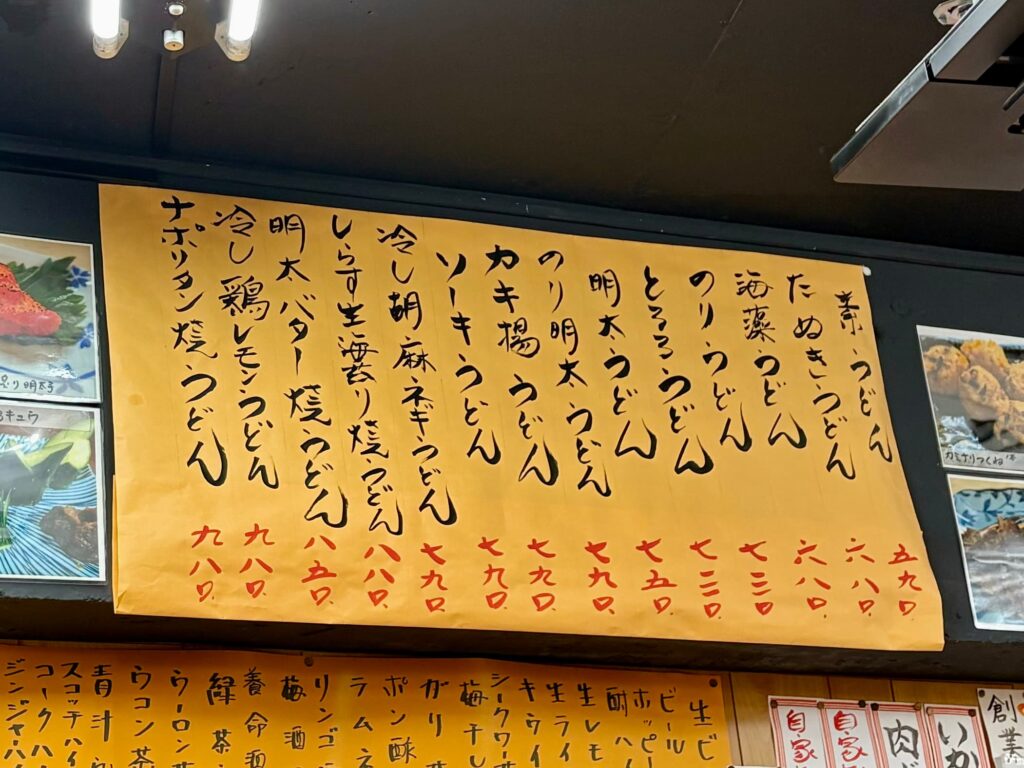 素うどん 五九〇
たぬきうどん 六八〇
海藻うどん 六八〇
のりうどん 七三〇
とろろうどん 七三〇
明太うどん 七五〇
のり明太うどん 七九〇
カキ揚うどん 七九〇
ソーキうどん 七九〇
冷し胡麻ネギうどん 七九〇
しらす生海苔り焼うどん 八八〇
明太バター焼うどん 八五〇
冷し鶏レモンうどん 九八〇
ナポリタン焼うどん 九八〇
カミナリつくね
炙り明太子
キュウ
生ビ
ビール
ホッピー
酎ハイ
生レモ
生ライ
キウイ
シークワーサ
梅干し
ガリ
ポン酢
ラムネ
リンゴ
梅酒
養命酒
緑茶
ウーロン
ウコン茶
青汁
スコッチハイ
コークハ
ジンジャーハイ
創業
いか
肉
自家
自家